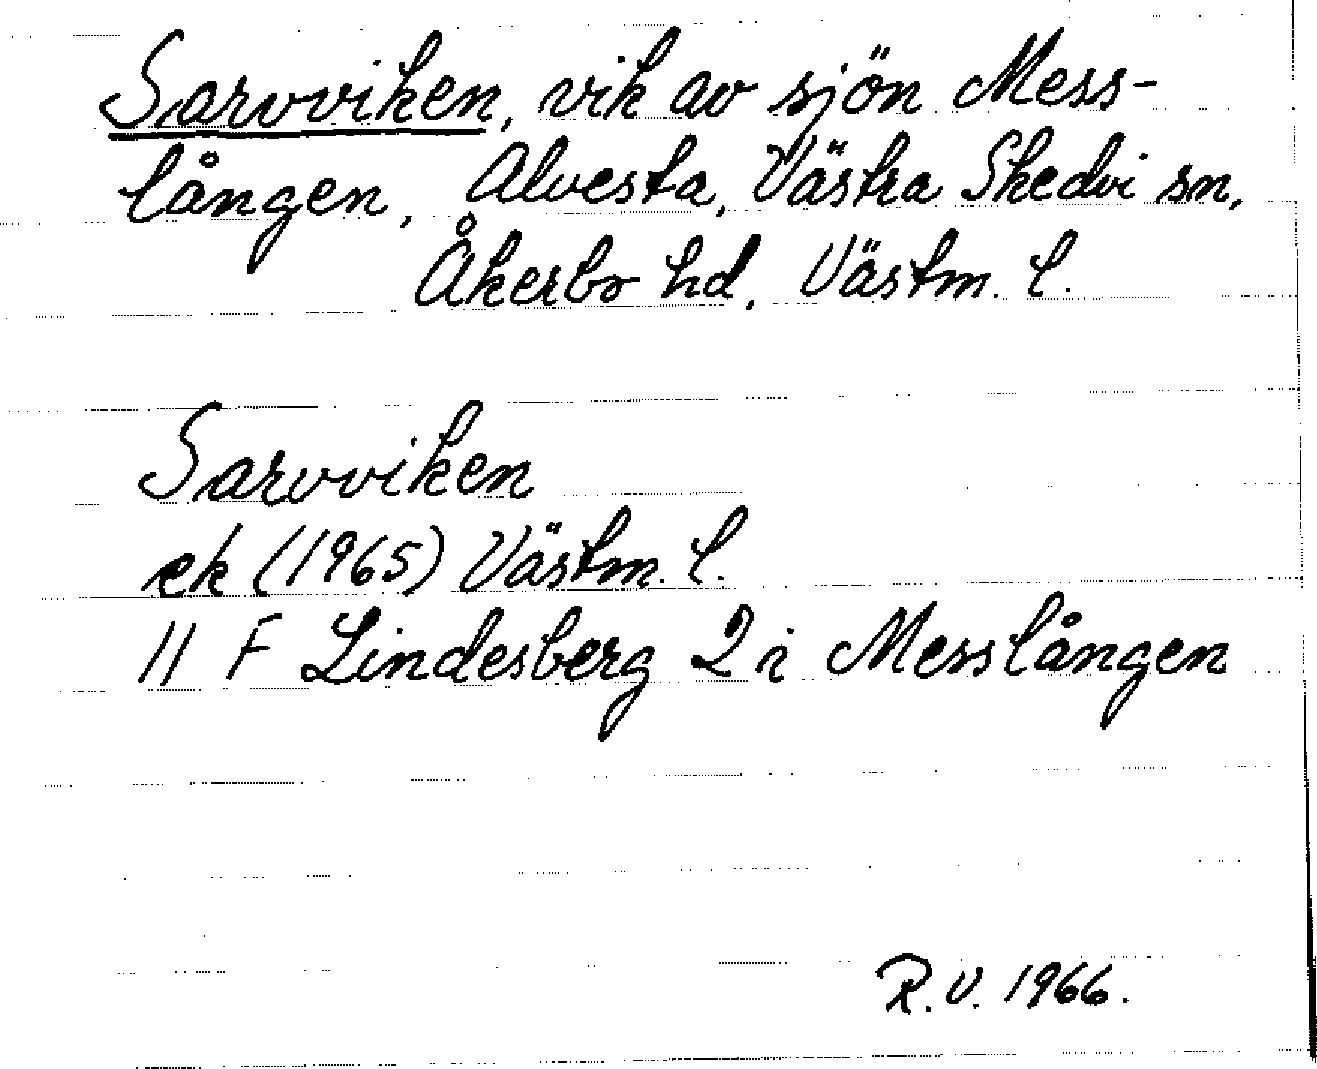 Sarvviken, vik av sjön Mess-
lången, Alvesta, Västra Skedvi sn,
Åkerbo hd, Västm. l.
Sarvviken
ek (1965) Västm. l.
11 F Lindesberg 2 i Messlången
R.V. 1966.